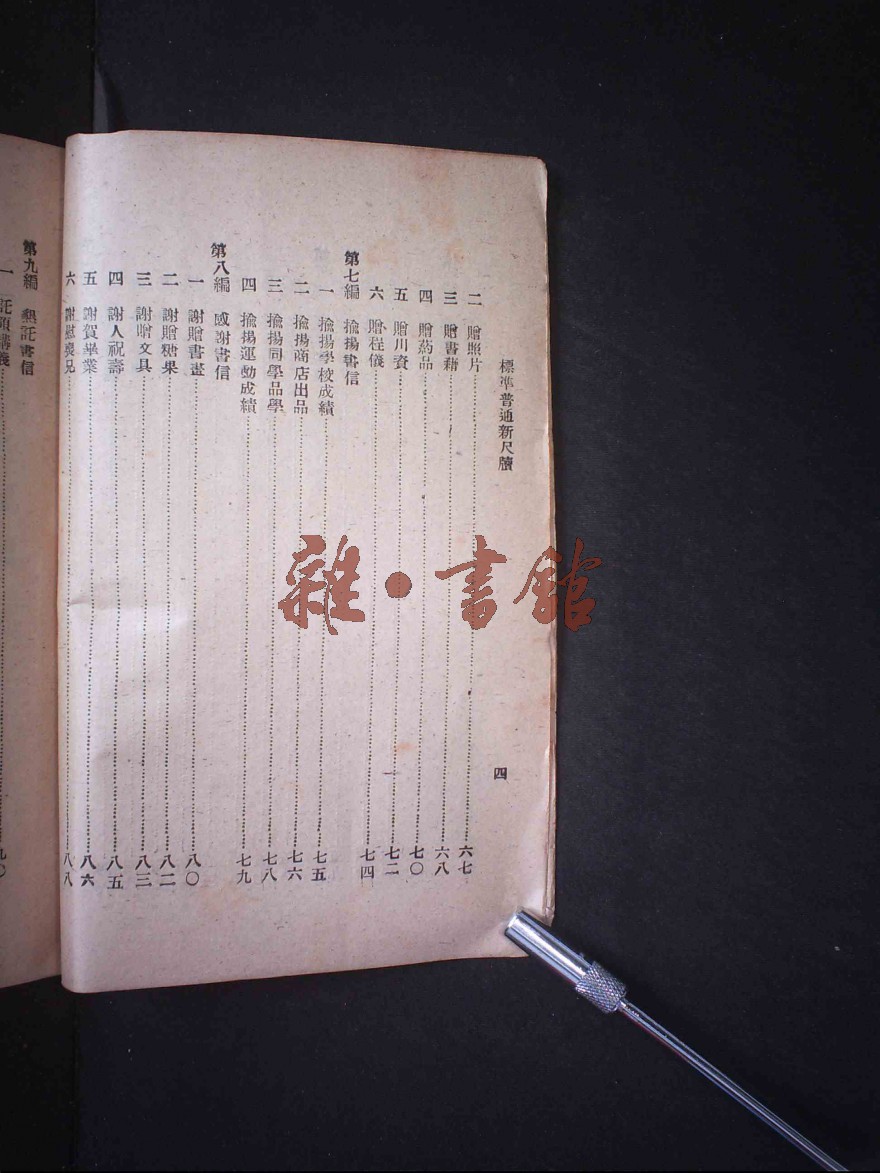 標準普通新尺牘
四
二　贈照片……六七
三　贈書籍……六八
四　贈葯品……七〇
五　贈川資……七二
六　贈程儀……七四
第七編　揄揚書信
一　揄揚學校成績……七五
二　揄揚商店出品……七六
三　揄揚同學品學……七八
四　揄揚運動成績……七九
第八編　感謝書信
一　謝贈書畫……八〇
二　謝贈糖果……八二
三　謝贈文具……八三
四　謝人祝壽……八五
五　謝賀畢業……八六
六　謝慰喪兄……八八
第九編　懇託書信
一　託領講義……九〇
雜·書館